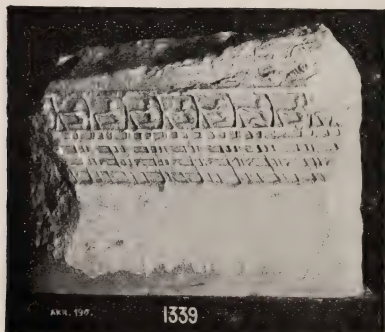 AKR. 190.
1339